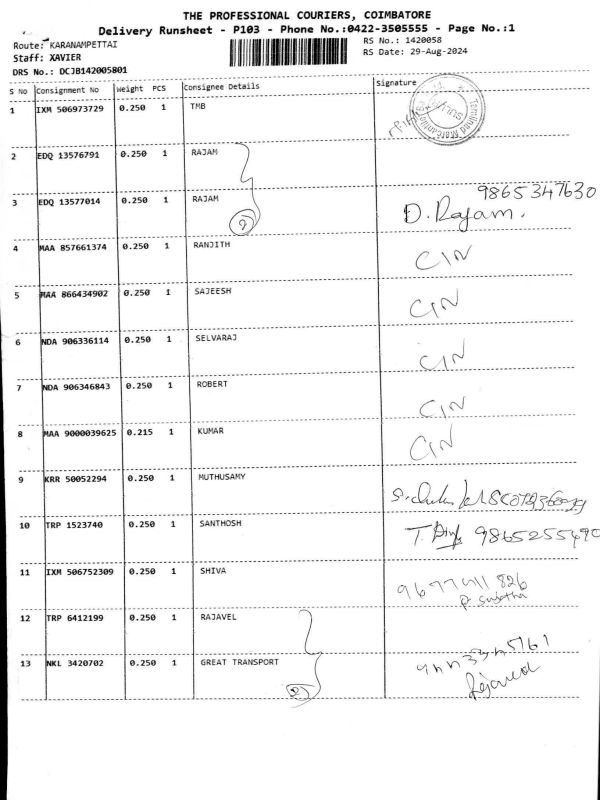 THE PROFESSIONAL COURIERS, COIMBATORE
Delivery Runsheet - P103 - Phone No.:0422-3505555 - Page No.:1
Route: KARANAMPETTAI
RS No.: 1420058
Staff: XAVIER
RS Date: 29-Aug-2024
DRS No.: DCJB142005801
S No Consignment No Weight PCS Consignee Details Signature
1 IXM 506973729 0.250 1 TMB
2 EDQ 13576791 0.250 1 RAJAM
9865347630
3 EDQ 13577014 0.250 1 RAJAM D. Rajam.
2
4 MAA 857661374 0.250 1 RANJITH CIN
5 MAA 866434902 0.250 1 SAJEESH CIN
6 NDA 906336114 0.250 1 SELVARAJ CIN
7 NDA 906346843 0.250 1 ROBERT CIN
8 MAA 9000039625 0.215 1 KUMAR CIN
9 KRR 50052294 0.250 1 MUTHUSAMY
10 TRP 1523740 0.250 1 SANTHOSH 9865255490
11 IXM 506752309 0.250 1 SHIVA
P. Sujatha
12 TRP 6412199 0.250 1 RAJAVEL
13 NKL 3420702 0.250 1 GREAT TRANSPORT
2